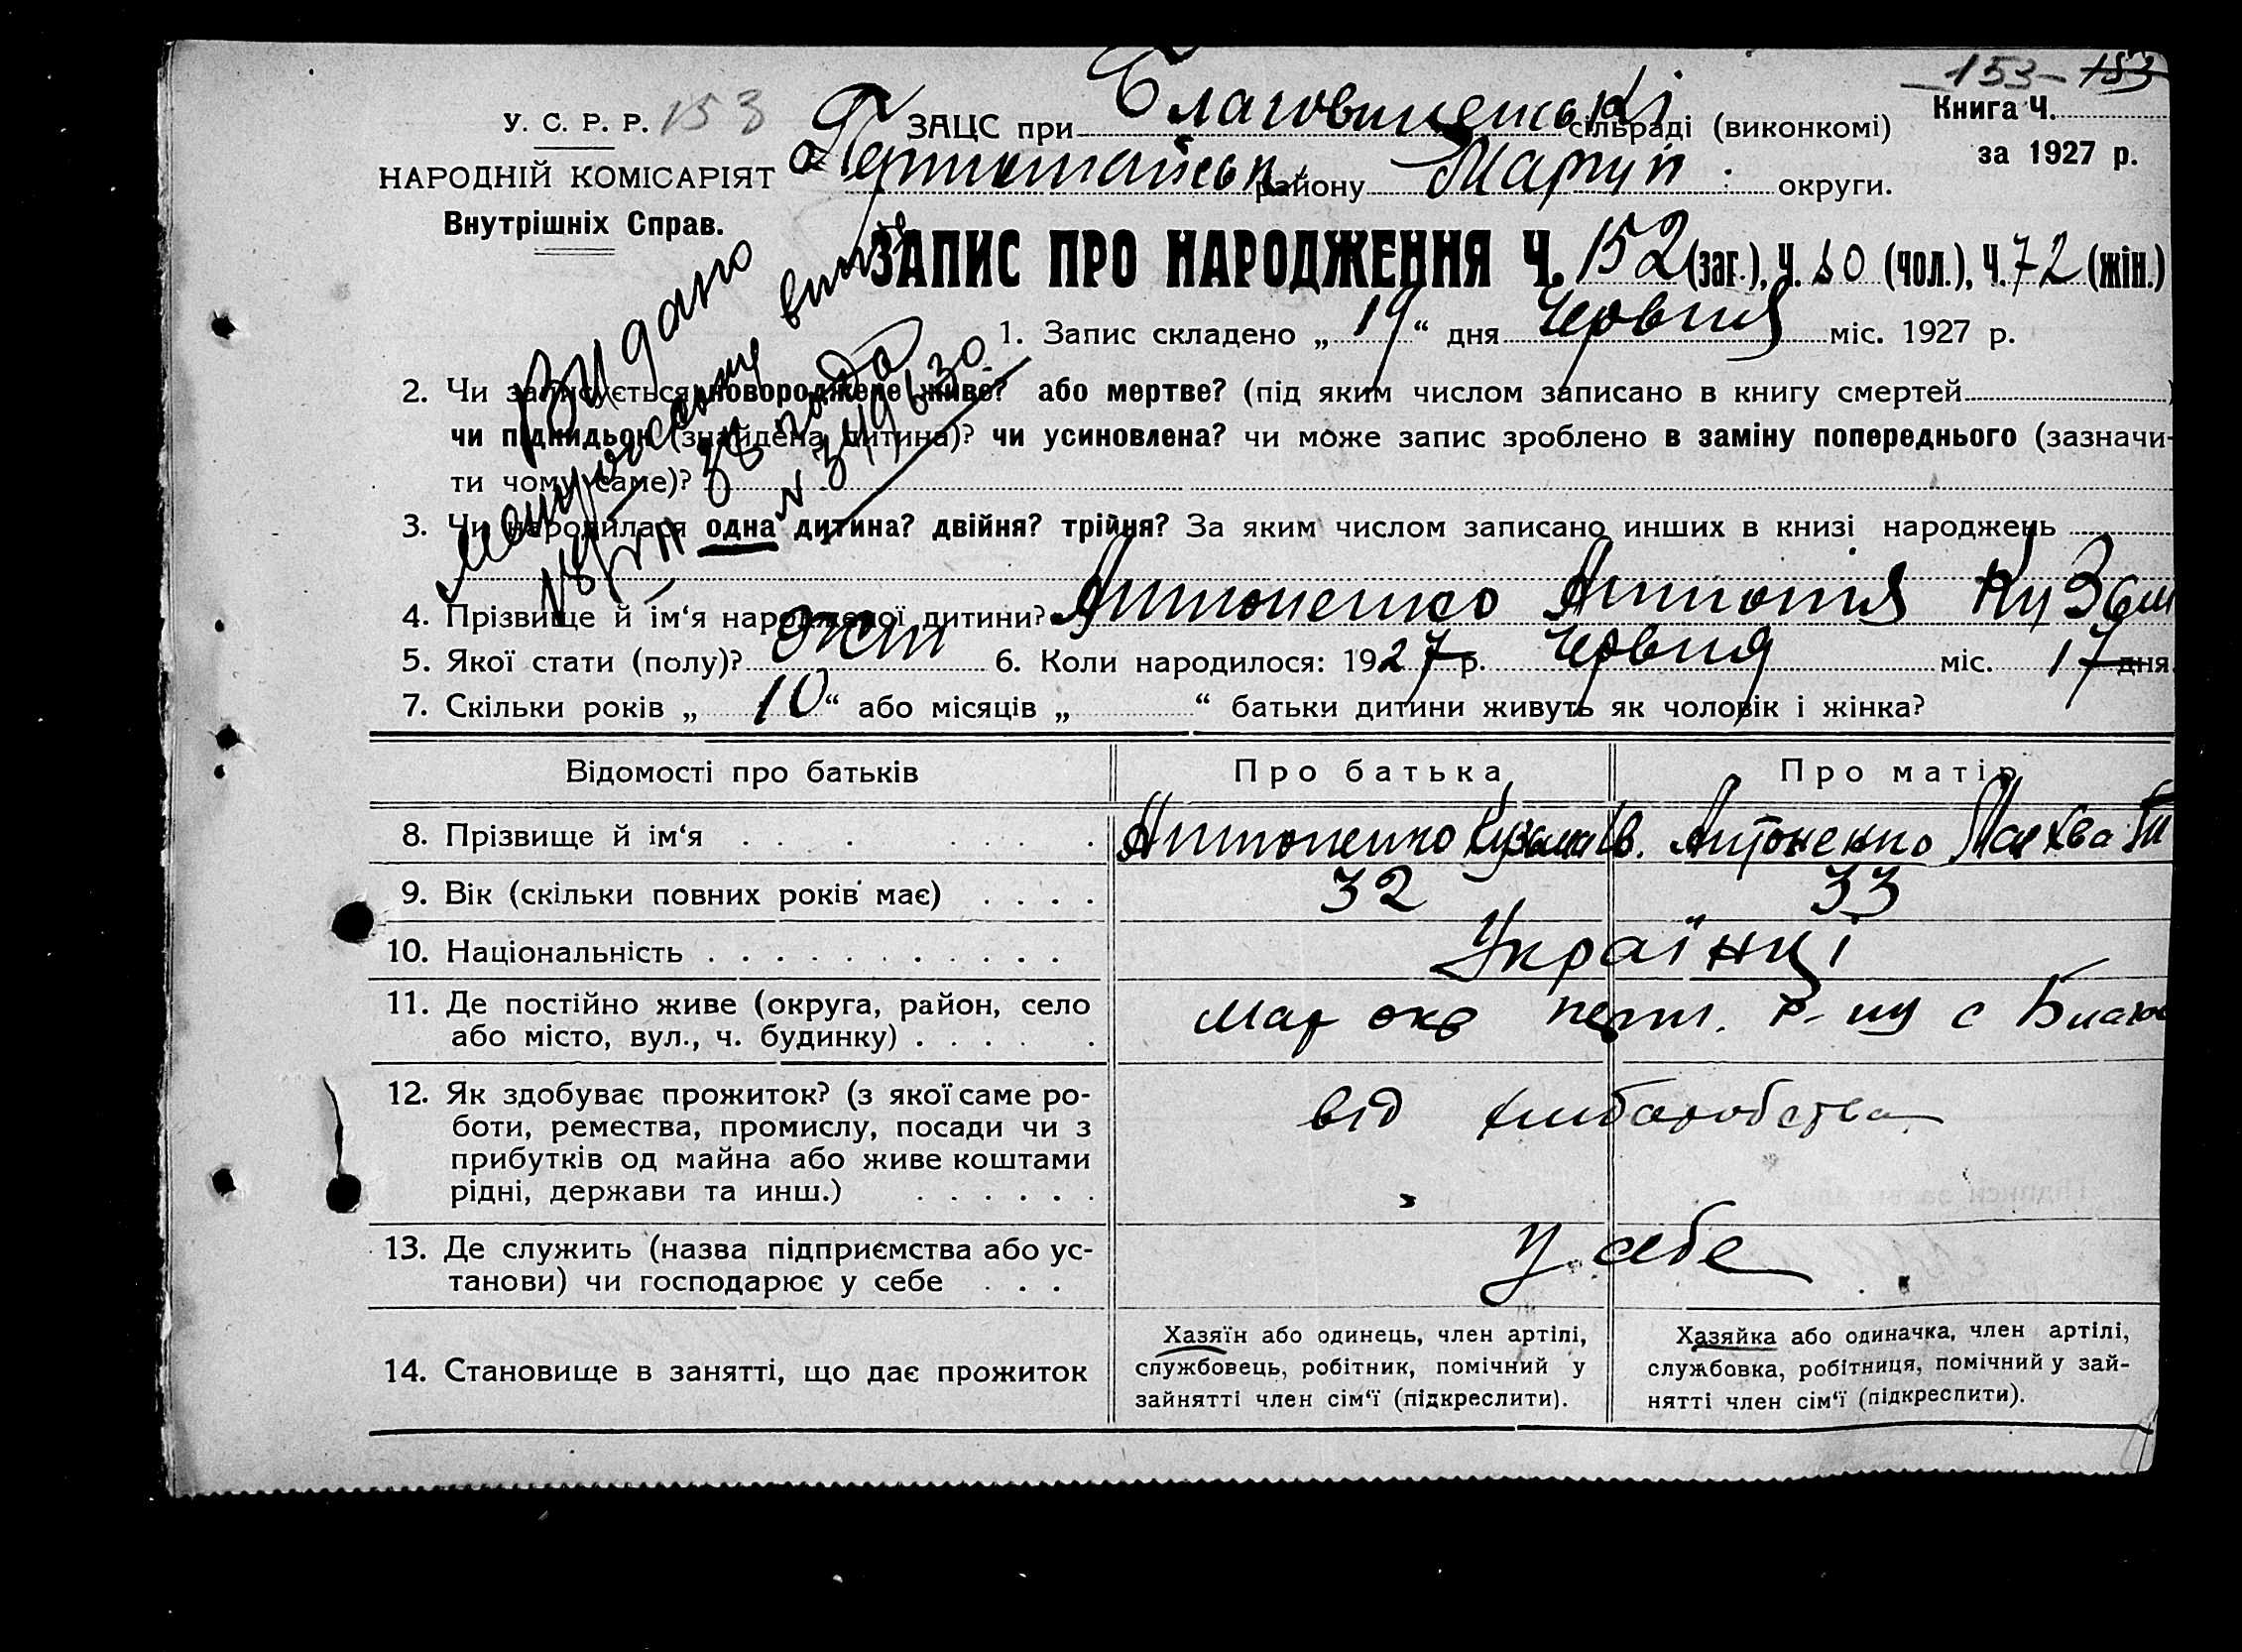 153 - 153
У. С. Р. Р. 153
ЗАЦС при Благовищенській сільраді (виконкомі)
Книга Ч.
за 1927 р.
НАРОДНІЙ КОМІСАРІЯТ
района Маріуп. округи.
Внутрішніх Справ.
ЗАПИС ПРО НАРОДЖЕННЯ Ч. 152 (заг.), Ч. 80 (чол.), Ч. 72 (жін.)
1. Запис складено „ 19 “ дня Червня міс. 1927 р.
Видано
2. Чи записується: новороджене живе? або мертве? (під яким числом записано в книгу смертей )
чи підкидьок (знайдена дитина)? чи усиновлена? чи може запис зроблено в заміну попереднього (зазначи-
ти чому саме)?
3. Чи народилася одна дитина? двійня? трійня? За яким числом записано инших в книзі народжень
4. Прізвище й ім‘я народженої дитини? Антоненко Антонія Кузьм
5. Якої стати (полу)? жін 6. Коли народилося: 1927 р. Червня міс. 17 дня
7. Скільки років „ 10 “ або місяців „ “ батьки дитини живуть як чоловік і жінка?
Відомості про батьків Про батька Про матір
8. Прізвище й ім‘я Антоненко Кузьма Ів. Антоненко
9. Вік (скільки повних років має) 32 33
10. Національність Українці
11. Де постійно живе (округа, район, село
або місто, вул., ч. будинку)
Мар окр перш. р-ну с Благо
12. Як здобуває прожиток? (з якої саме ро-
боти, ремества, промислу, посади чи з
прибутків од майна або живе коштами
рідні, держави та инш.)
від хлиборобства
13. Де служить (назва підприємства або ус-
танови) чи господарює у себе
У себе
14. Становище в занятті, що дає прожиток
Хазяїн або одинець, член артілі,
службовець, робітник, помічний у
зайнятті член сім‘ї (підкреслити).
Хазяйка або одиначка, член артілі,
службовка, робітниця, помічний у зай-
нятті член сім‘ї (підкреслити).